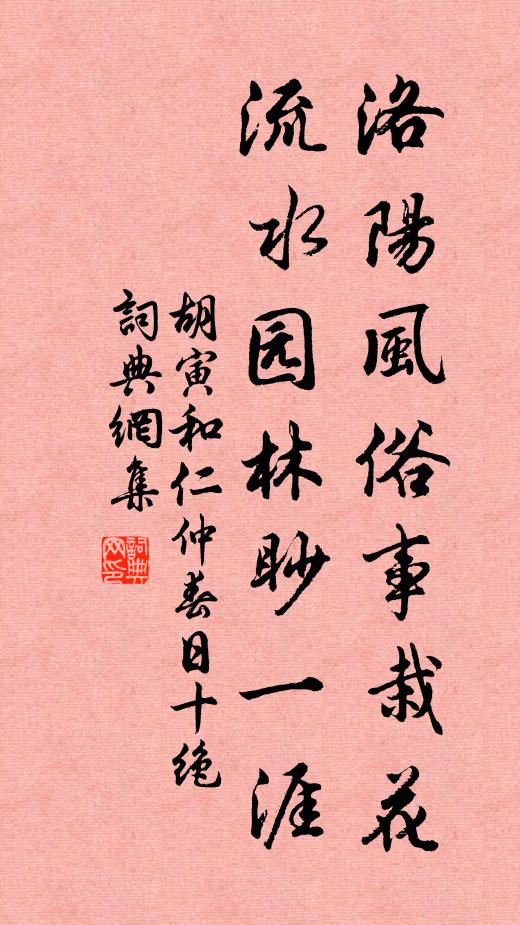 洛陽風俗事栽花
流水园林眇一涯
胡寅和仁仲春日十绝
詞典網集
詞典网印